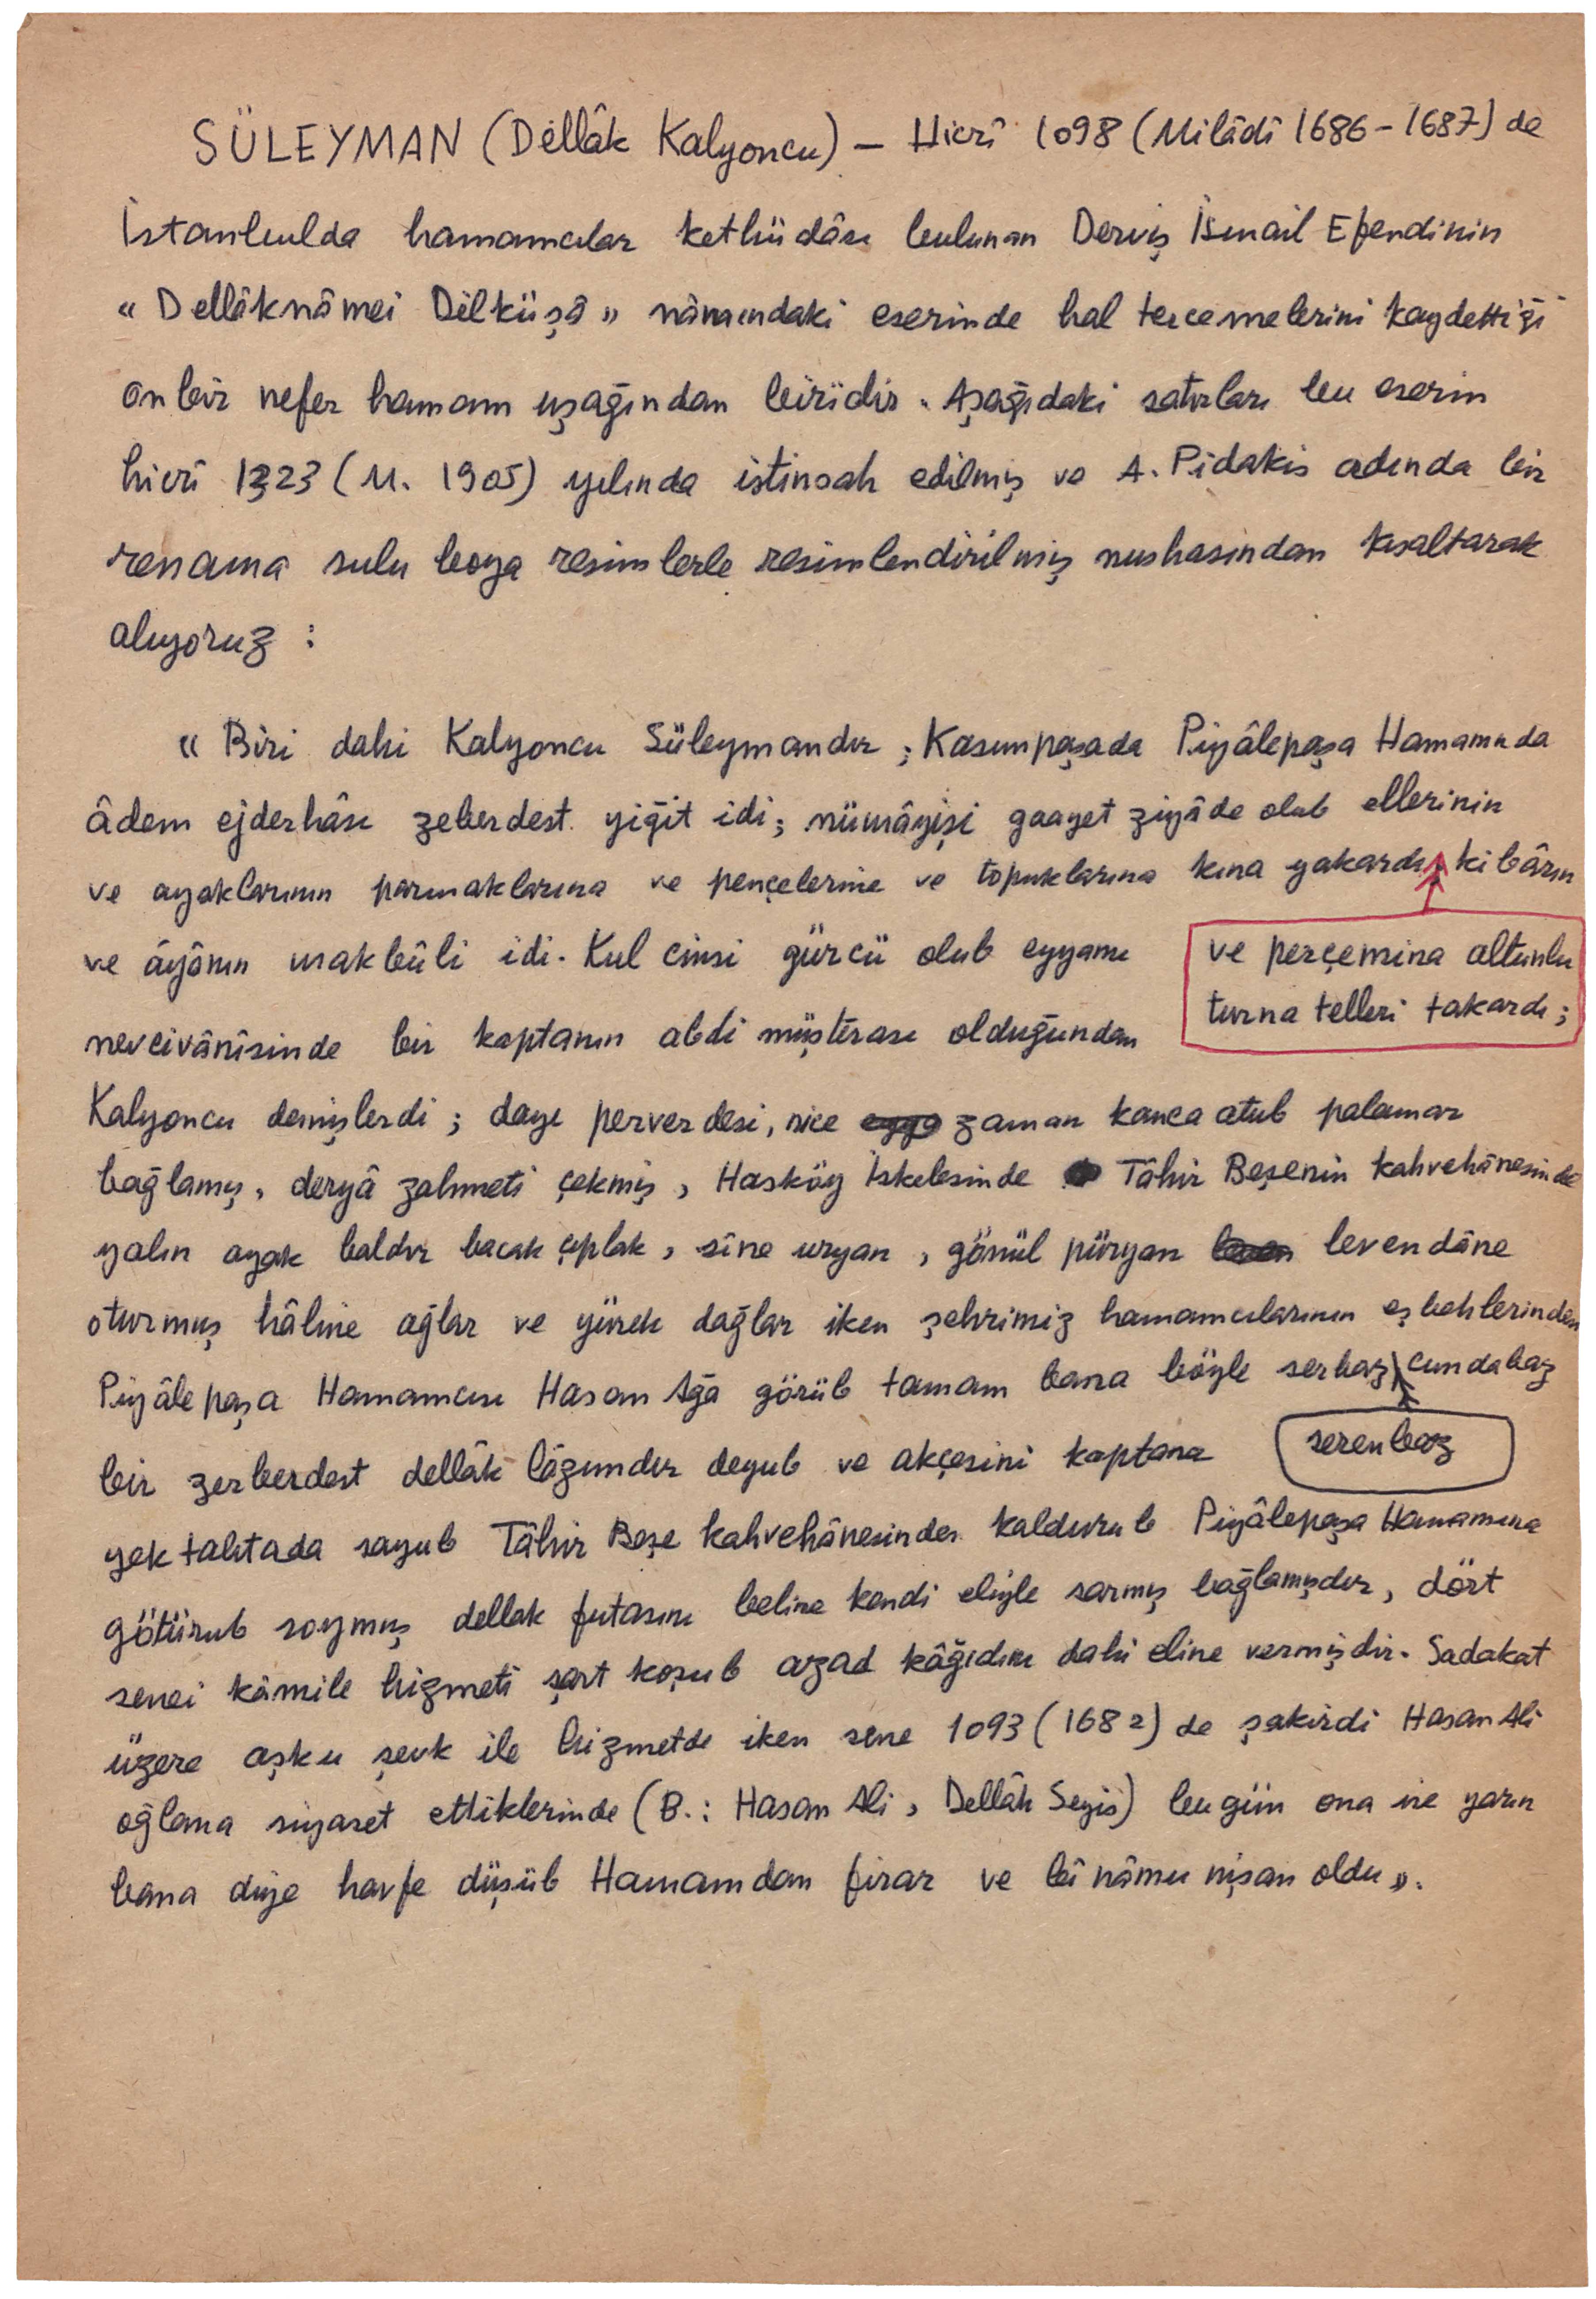 SÜLEYMAN (Dellâk Kalyoncu) — Hicrî 1098 (Milâdî 1686-1687) de
İstanbulda hamamcılar kethüdâsı bulunan Derviş İsmail Efendinin
« Dellâknâmei Dilküşâ » nâmındaki eserinde hal tercemelerini kaydettiği
onbir nefer hamam uşağından biridir. Aşağıdaki satırları bu eserin
hicrî 1323 (M. 1905) yılında istinsah edilmiş ve A. Pidakis adında bir
ressama sulu boya resimlerle resimlendirilmiş nushasından kısaltarak
alıyoruz :
« Biri dahi Kalyoncu Süleymandır ; Kasımpaşada Piyâlepaşa Hamamında
âdem ejderhâsı zeberdest yiğit idi ; nümâyişi gaayet ziyâde olub ellerinin
ve ayaklarının parmaklarına ve pençelerine ve topuklarına kına yakardı, kibârın
ve perçemina altunlu
turna telleri takardı ;
ve âyânın makbûli idi. Kul cinsi gürcü olub eyyamı
nevcivânîsinde bir kaptanın abdi müşterası olduğundan
Kalyoncu demişlerdi ; dayı perverdesi, nice zaman kanca atub palamar
bağlamış, deryâ zahmeti çekmiş, Hasköy İskelesinde Tâhir Beşenin kahvehânesinde
yalın ayak baldır bacak çıplak, sîne uryan, gönül püryan levendâne
oturmuş hâline ağlar ve yürek dağlar iken şehrimiz hamamcılarının eşbehlerinden
Piyâlepaşa Hamamcısı Hasan Ağa görüb tamam bana böyle serbaz cundabaz
serenbaz
bir zerberdest dellâk lâzımdır deyub ve akçesini kaptana
yek tahtada sayub Tâhir Beşe kahvehânesinden kaldurub Piyâlepaşa Hamamına
götürub soymuş dellak futasını beline kendi eliyle sarmış bağlamışdır, dört
senei kâmile hizmeti şart koşub azad kâğıdını dahi eline vermişdir. Sadakat
üzere aşku şevk ile hizmetde iken sene 1093 (1682) de şakirdi Hasan Ali
oğlana siyaset ettiklerinde (B.: Hasan Ali, Dellâk Seyis) bugün ona ise yarın
bana diye havfe düşüb Hamamdan firar ve bî nâmu nişan oldu ».